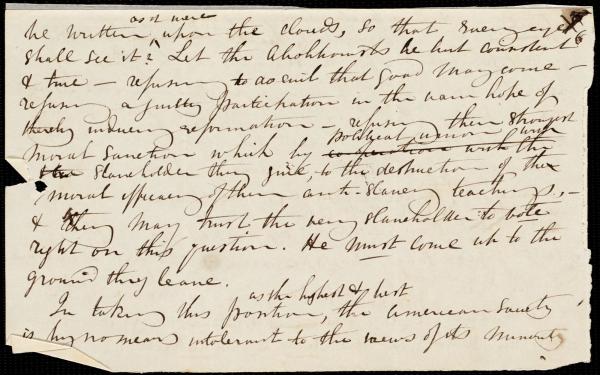 as it were
be written upon the clouds, so that every eye
shall see it? Let the Abolitionists be but consistent
& true — refusing to do evil that good may come —
refusing a guilty participation in the vain hope of
thereby inducing reformation — refusing their strongest
political union with
moral sanction which by cooperation with the
slaveholder they give, to the destruction of the
moral efficiency of their anti-slavery teachings, —
& they may trust the very slaveholder to vote
right on this question. He must come up to the
ground they leave.
as the highest & best
In taking this position, the American Society
is by no means intolerant to the views of its minority